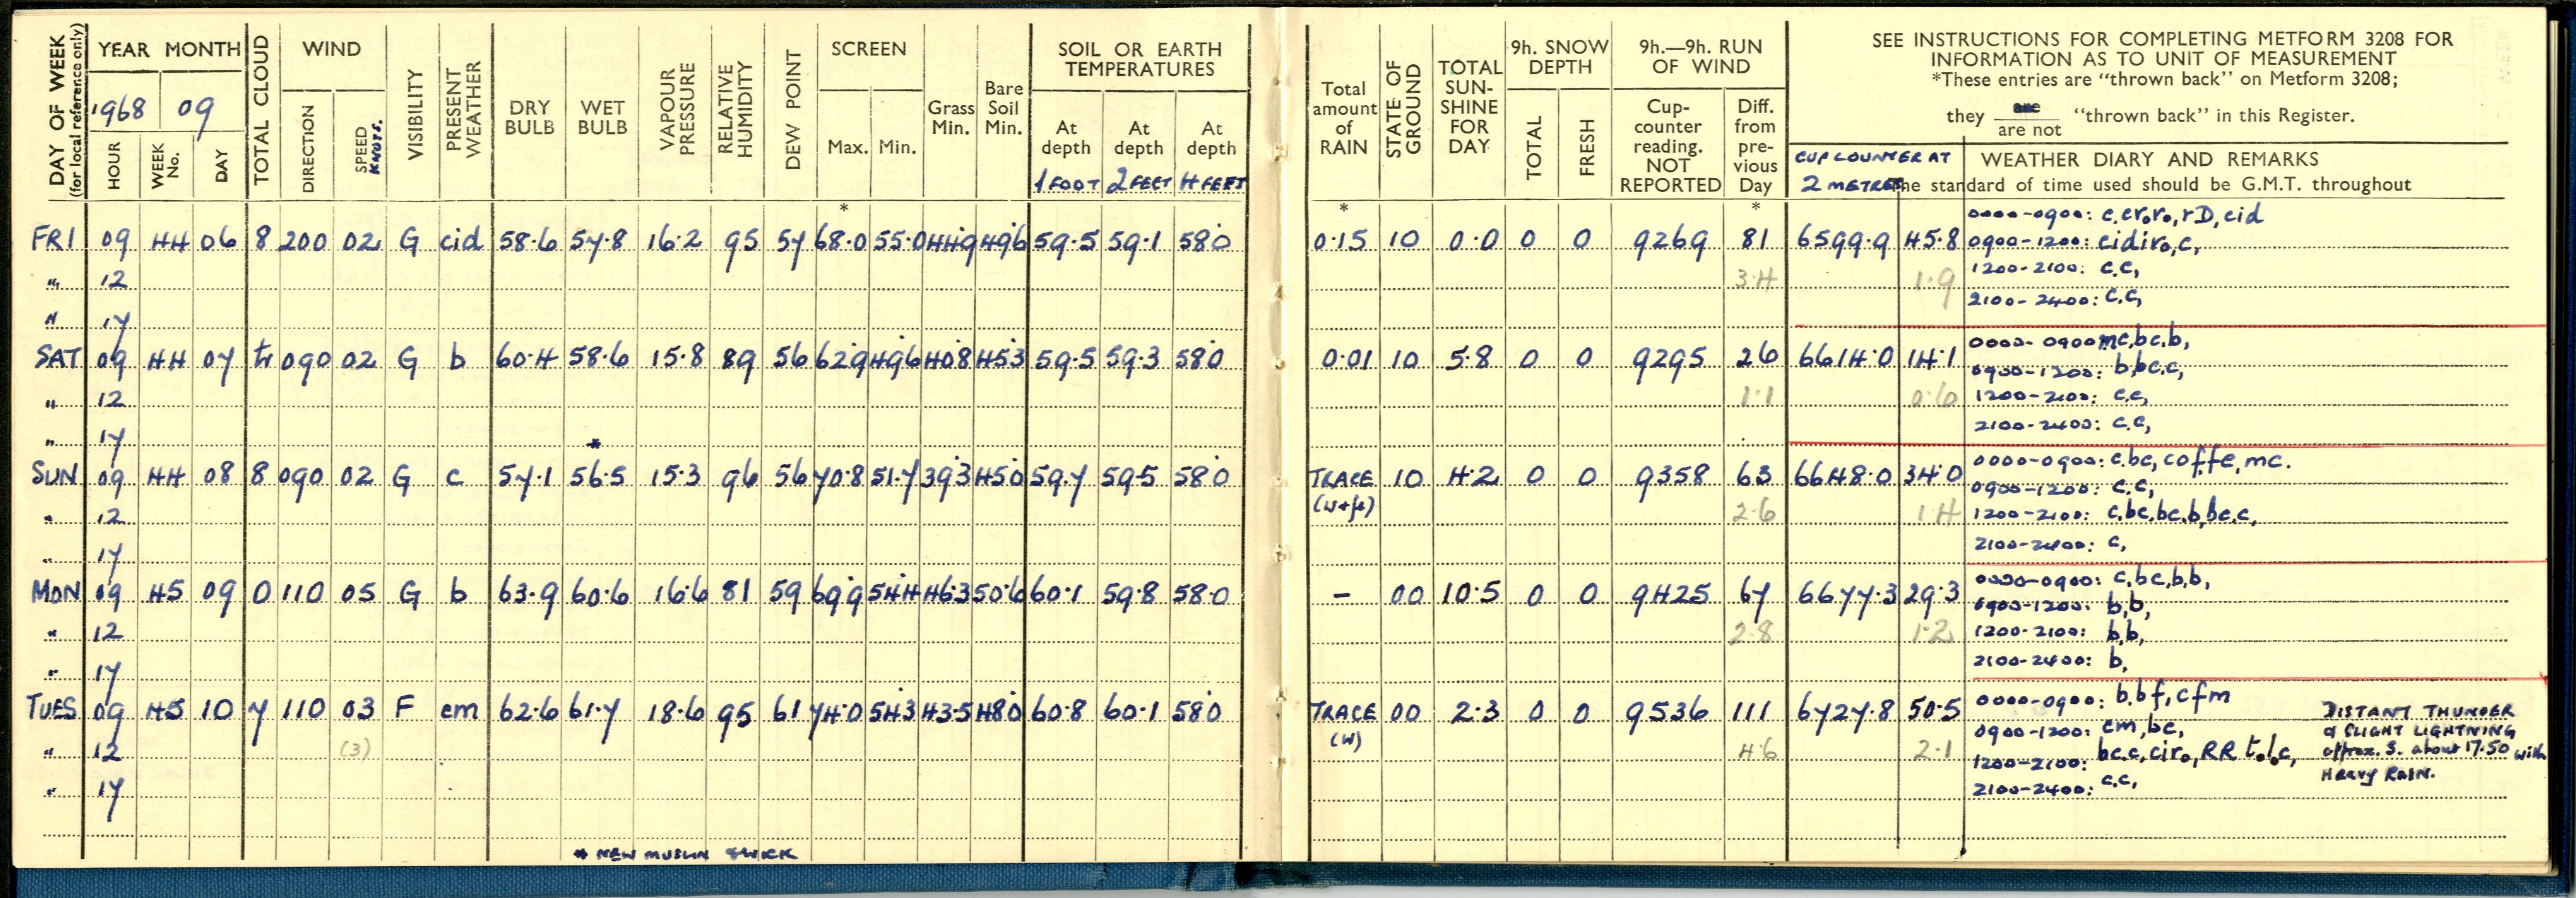 DAY OF WEEK
(for local reference only)
YEAR MONTH
1968 09
HOUR
WEEK No.
DAY
TOTAL CLOUD
WIND
DIRECTION
SPEED KNOTS.
VISIBILITY
PRESENT WEATHER
DRY BULB
WET BULB
VAPOUR PRESSURE
RELATIVE HUMIDITY
DEW POINT
SCREEN
Max. Min.
Grass Min.
Bare Soil Min.
SOIL OR EARTH TEMPERATURES
At depth 1 FOOT
At depth 2 FEET
At depth 4 FEET
Total amount of RAIN
STATE OF GROUND
TOTAL SUN-SHINE FOR DAY
9h. SNOW DEPTH
TOTAL
FRESH
9h.—9h. RUN OF WIND
Cup-counter reading. NOT REPORTED
Diff. from pre-vious Day
SEE INSTRUCTIONS FOR COMPLETING METFORM 3208 FOR
INFORMATION AS TO UNIT OF MEASUREMENT
*These entries are "thrown back" on Metform 3208;
they are / are not "thrown back" in this Register.
CUP COUNTER AT
2 METRES
WEATHER DIARY AND REMARKS
The standard of time used should be G.M.T. throughout
* * *
FRI 09 44 06 8 200 02 G cid 58.6 57.8 16.2 95 57 68.0 55.0 44.9 49.6 59.5 59.1 58.0 0.15 10 0.0 0 0 9269 81 6599.9 45.8
0000-0900: c,cr₀r₀,rD,cid
0900-1200: cidir₀,c,
" 12 3.4 1.9 1200-2100: c.c,
" 17 2100-2400: c.c,
SAT 09 44 07 tr 090 02 G b 60.4 58.6 15.8 89 56 62.9 49.6 40.8 45.3 59.5 59.3 58.0 0.01 10 5.8 0 0 9295 26 6614.0 14.1
0000-0900 mc,bc,b,
0900-1200: b,bc.c,
" 12 1.1 0.6 1200-2100: c.c,
" 17 2100-2400: c.c,
*
SUN 09 44 08 8 090 02 G c 57.1 56.5 15.3 96 56 70.8 51.7 39.3 45.0 59.7 59.5 58.0 TRACE 10 4.2 0 0 9358 63 6648.0 34.0
(w+f)
0000-0900: c.bc, cof,fe, mc.
0900-1200: c.c,
" 12 2.6 1.4 1200-2100: c,bc.bc.b,bc.c,
" 17 2100-2400: c,
MON 09 45 09 0 110 05 G b 63.9 60.6 16.6 81 59 69.9 54.4 46.3 50.6 60.1 59.8 58.0 - 00 10.5 0 0 9425 67 6677.3 29.3
0000-0900: c,bc,b,b,
0900-1200: b,b,
" 12 2.8 1.2 1200-2100: b,b,
" 17 2100-2400: b,
TUES 09 45 10 7 110 03 F cm 62.6 61.7 18.6 95 61 74.0 54.3 43.5 48.0 60.8 60.1 58.0 TRACE 00 2.3 0 0 9536 111 6727.8 50.5
(W)
0000-0900: b.b f, c f m
0900-1200: cm,bc,
" 12 (3) 4.6 2.1 1200-2100: bc.c, cir₀, RR t.l.c,
" 17 2100-2400: c.c,
DISTANT THUNDER
& SLIGHT LIGHTNING
approx. S. about 17.50 with
HEAVY RAIN.
* NEW MUSLIN & WICK